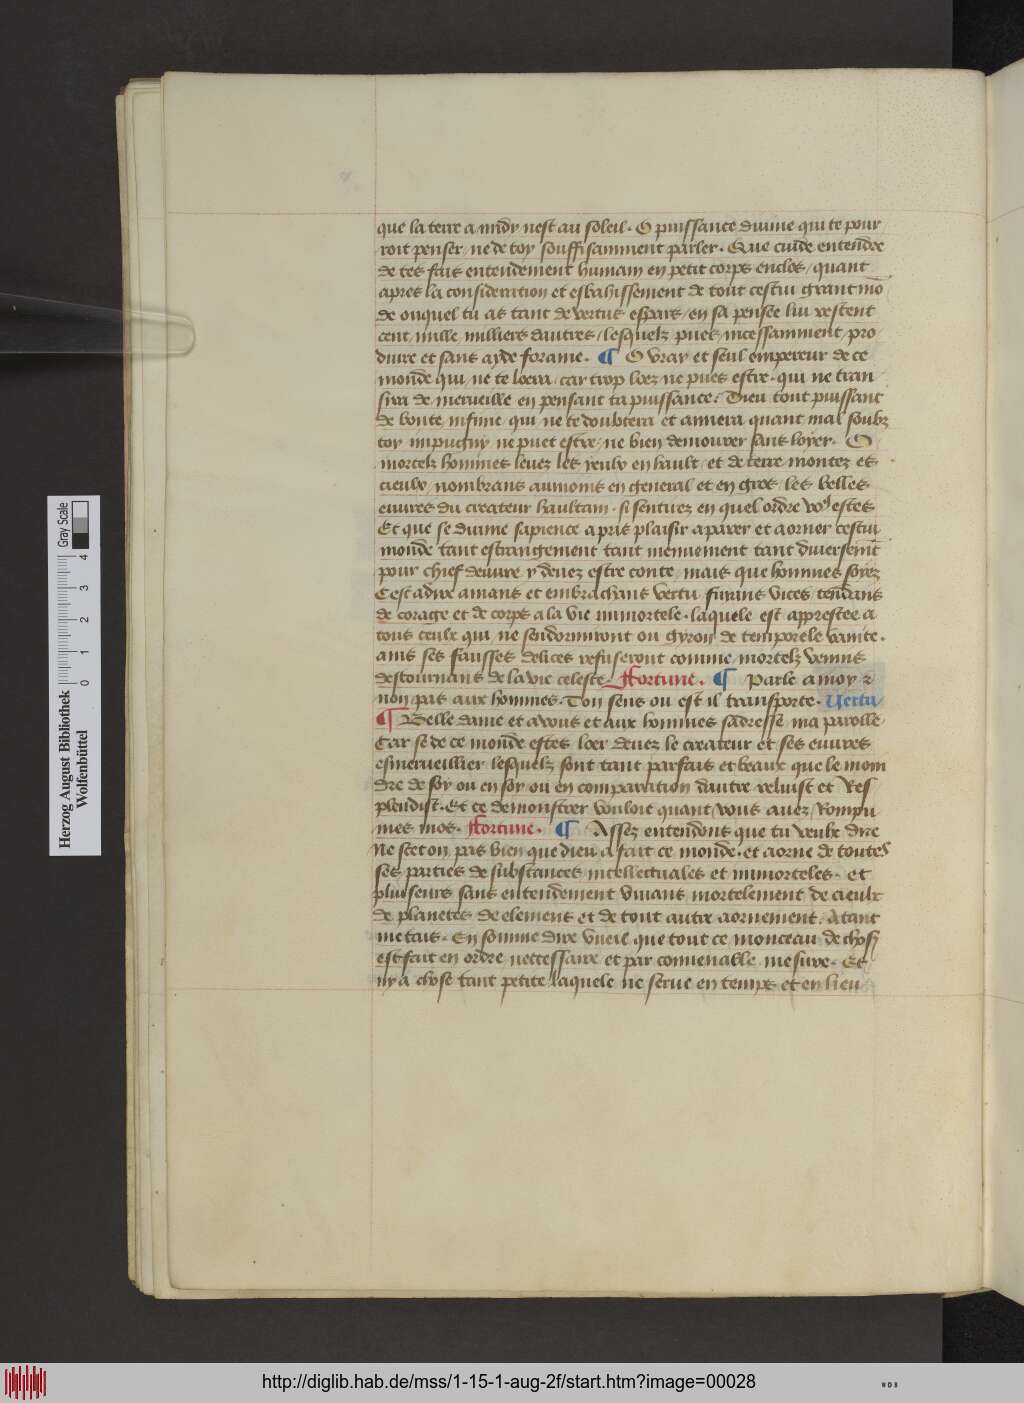 que la terre a midy nest au soleil. O puissance divine qui te pour
roit penser ne de toy souffisamment parler. Que cuide entendre
de tes fais entendement humain en petit corps enclos, quant
apres la consideration et esbahissement de tout cestui grant mo
de ouquel tu as tant de vertus espars, en sa pensee lui restent
cent mille milliers dautres, lesquelz pues incessamment pro
duire et sans ayde forame. ¶ O vray et seul empereur de ce
monde qui ne te loera, car trop loez ne pues estre. qui ne tran
sira de merveille en pensant ta puissance. Dieu tout puissant
de bonte infinie qui ne te doubtera et amera quant mal soubz
toy impugny ne puet estre, ne bien demourer sans loyer. O
mortelz hommes levez les yeulx en hault, et de terre montez es
cieulx, nombrans aumoins en general et en gros les belles
euvres du createur haultain. si sentirez en quel ordre vo9 estes
Et que se divine sapience a pris plaisir a parer et aorner cestui
monde tant estrangement tant menuement tant diversemt
pour chief deuvre y devez estre conte, mais que hommes soyez
Cest adire amans et embrachans vertu fuyans vices tendans
de corage et de corps a la vie immortele. laquele est apprestee a
tous ceulx qui ne sendormiront ou gyron de temporele vanite.
ains ses fausses delices refuseront comme mortelz venins
destournans de la vie celeste. Fortune. ¶ Parle a moy z
non pas aux hommes. Ton sens ou est il transporte. Vertu
¶ Belle dame et a vous et aux hommes sadresse ma parolle
Car se de ce monde estes loer devez le createur et ses euvres
esmerveillier lesquelz sont tant parfais et beaux que le moin
dre de soy ou en soy ou en comparation dautre reluist et Res
plendist. Et ce demonstrer vouloie quant vous avez Rompu
mes mos. Fortune. ¶ Assez entendons que tu veulx dire
Ne scet on pas bien que dieu a fait ce monde. et aorne de toutes
ses parties de substances intellectuales et immorteles. et
pluiseurs sans entendement vivans mortelement de cieulx
de planetes de elemens et de tout autre aornement. Atant
me tais. En somme dire vueil que tout ce monceau de chos
est fait en ordre neccessaire et par convenable mesure. Et
ny a chose tant petite laquele ne serve en temps et en lieu
Herzog August Bibliothek
Wolfenbüttel
0 1 2 3 4
Gray Scale
http://diglib.hab.de/mss/1-15-1-aug-2f/start.htm?image=00028
WDB